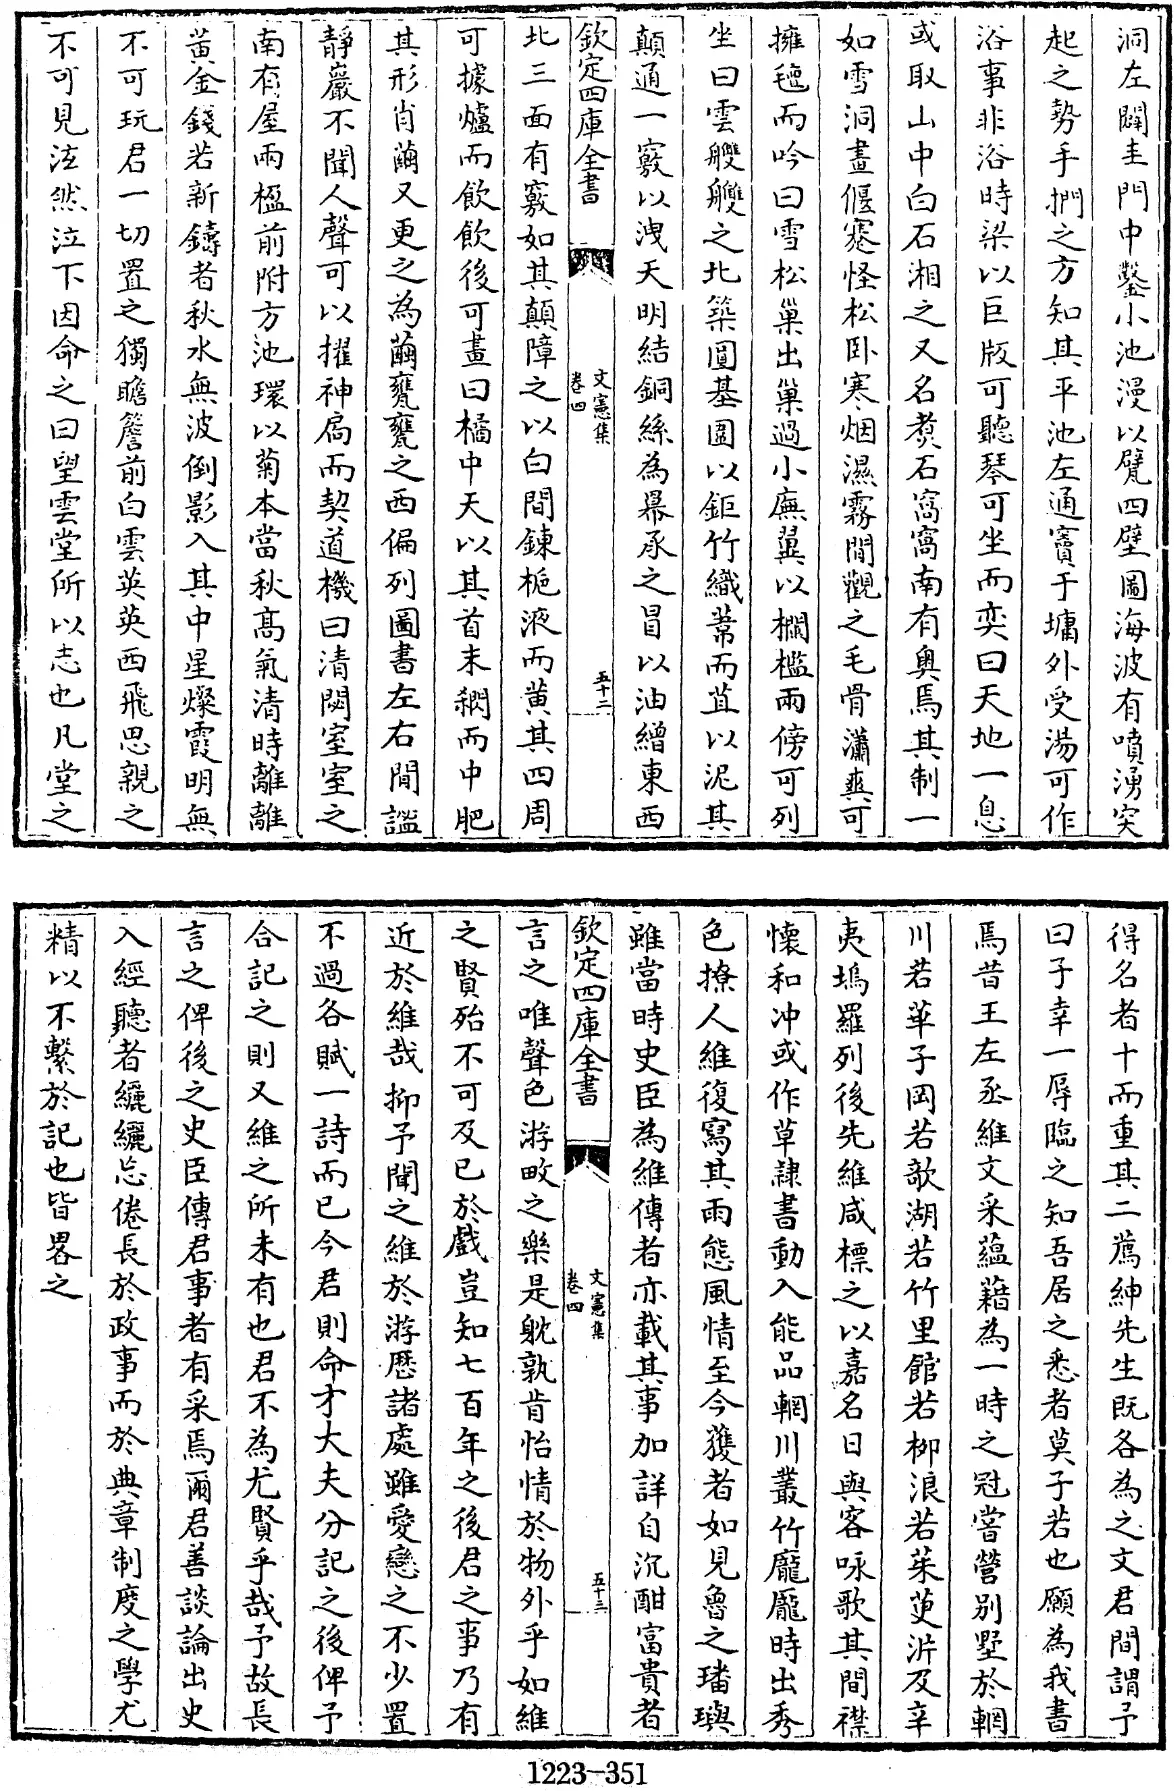 洞左闢圭門中鑿小池漫以甓四壁圖海波有噴湧突
起之勢手捫之方知其平池左通竇于墉外受湯可作
浴事非浴時梁以巨版可聽琴可坐而奕曰天地一息
或取山中白石湘之又名煑石窩窩南有奥焉其制一
如雪洞畫偃蹇怪松卧寒烟濕霧間觀之毛骨瀟爽可
擁毳而吟曰雪松巢出巢過小廡翼以欄檻兩傍可列
坐曰雲艭艭之北築圓基圍以鉅竹織葦而苴以泥其
顛通一竅以洩天明結銅絲為幕承之冒以油繒東西
欽定四庫全書
文憲集
卷四
五十二
北三面有竅如其顛障之以白間鍊梔液而黄其四周
可據爐而飲飲後可畫曰橘中天以其首末網而中肥
其形肖繭又更之為繭甕甕之西偏列圖書左右間謐
靜巖不聞人聲可以擢神扃而契道機曰清閟室室之
南有屋兩楹前附方池環以菊本當秋髙氣清時離離
黄金錢若新鑄者秋水無波倒影入其中星燦霞明無
不可玩君一切置之獨瞻簷前白雲英英西飛思親之
不可見泫然泣下因命之曰望雲堂所以志也凡堂之
得名者十而重其二薦紳先生既各為之文君間謂予
曰子幸一辱臨之知吾居之悉者莫子若也願為我書
焉昔王左丞維文采藴藉為一時之冠嘗營别墅於輞
川若華子岡若欹湖若竹里館若柳浪若茱萸沜及辛
夷塢羅列後先維咸標之以嘉名日與客咏歌其間襟
懷和冲或作草隷書動入能品輞川叢竹龎龎時出秀
色撩人維復寫其雨態風情至今獲者如見魯之璠璵
雖當時史臣為維傳者亦載其事加詳自沉酣富貴者
欽定四庫全書
文憲集
卷四
五十三
言之唯聲色游畋之樂是躭孰肯怡情於物外乎如維
之賢殆不可及已於戲豈知七百年之後君之事乃有
近於維哉抑予聞之維於游歴諸處雖愛戀之不少置
不過各賦一詩而已今君則命才大夫分記之後俾予
合記之則又維之所未有也君不為尤賢乎哉予故長
言之俾後之史臣傳君事者有采焉爾君善談論出史
入經聽者纚纚忘倦長於政事而於典章制度之學尤
精以不繫於記也皆畧之
1223-351